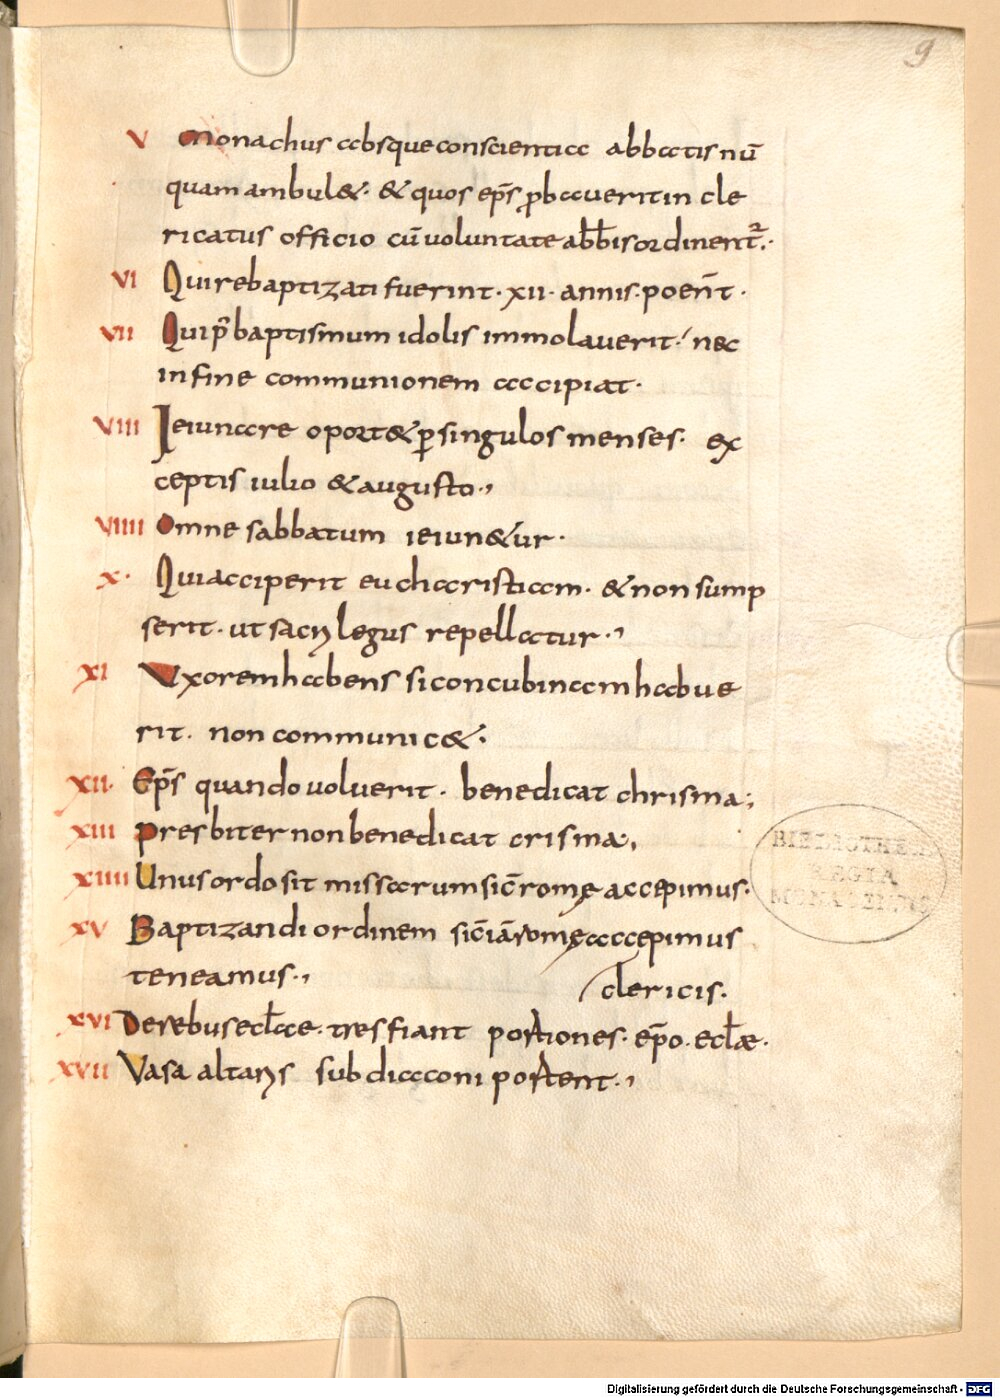 9
V Monachus absque conscientia abbatis nū
quam ambul&· & quos ep̄s p̱baverit in cle
ricatus officio cū voluntate abb̄is ordinent᷑·
VI Qui rebaptizati fuerint· xii· annis· poen̄t·
VII Qui p᷑ baptismum idolis immolaverit· nec
in fine communionem accipiat·
VIII Ieiunare oport& ꝑ singulos menses· ex
ceptis iulio & augusto·,
VIIII Omne sabbatum ieiun&ur·
X· Qui acciperit eucharistiam· & non sump
serit· ut sacrylegus repellatur·,
XI Vxorem habens si concubinam habue
rit· non communic&·
XII· Ep̄s quando voluerit· benedicat chrisma;
XIII Presbiter non benedicat crisma·,
XIIII Unus ordo sit missarum sic̄ romę accepimus·
XV Baptizandi ordinem sic̄ iā romę accepimus
teneamus·, / clericis·
XVI De rebus eccl̄ae· tres fiant portiones· ep̄o· eccl̄æ·
XVII Vasa altarys subdiaconi portent·,
BIBLIOTHECA
REGIA
MONACENSIS
Digitalisierung gefördert durch die Deutsche Forschungsgemeinschaft - DFG